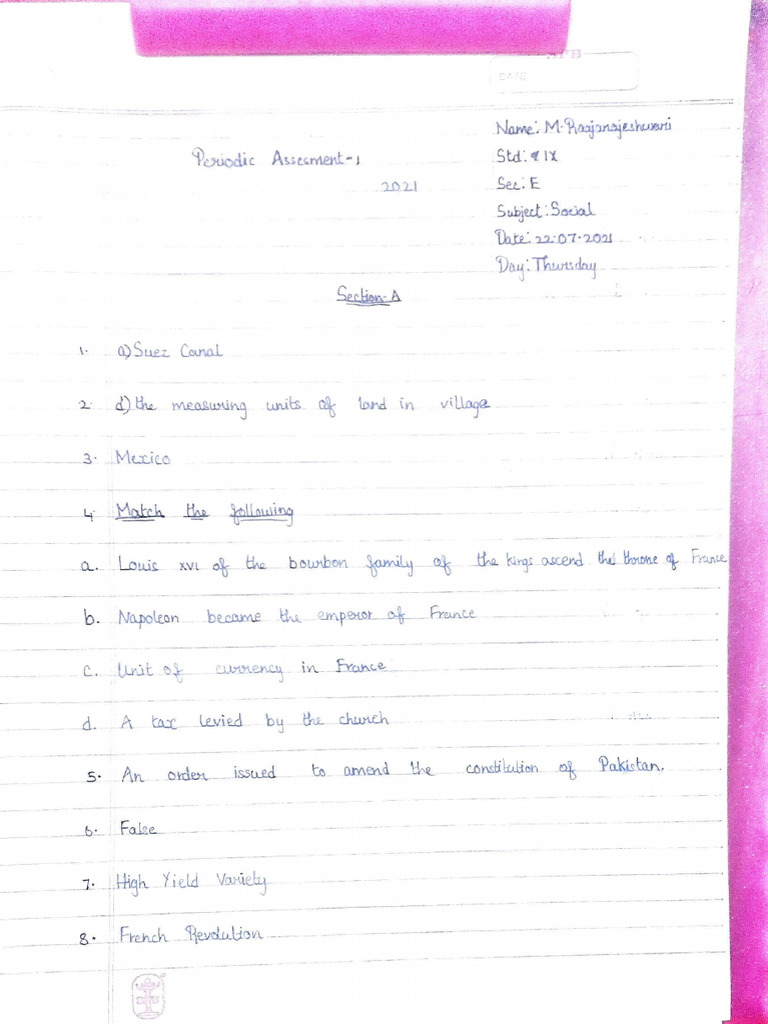 DATE
Name: M. Raajarajeshwari
Periodic Assesment-1
Std: IX
2021
Sec: E
Subject: Social
Date: 22-07-2021
Day: Thursday
Section-A
1. a) Suez Canal
2. d) the measuring units of land in village
3. Mexico
4. Match the following
a. Louis XVI of the bourbon family of the kings ascend the throne of France
b. Napoleon became the emperor of France
c. Unit of currency in France
d. A tax levied by the church
5. An order issued to amend the constitution of Pakistan.
6. False
7. High Yield Variety
8. French Revolution